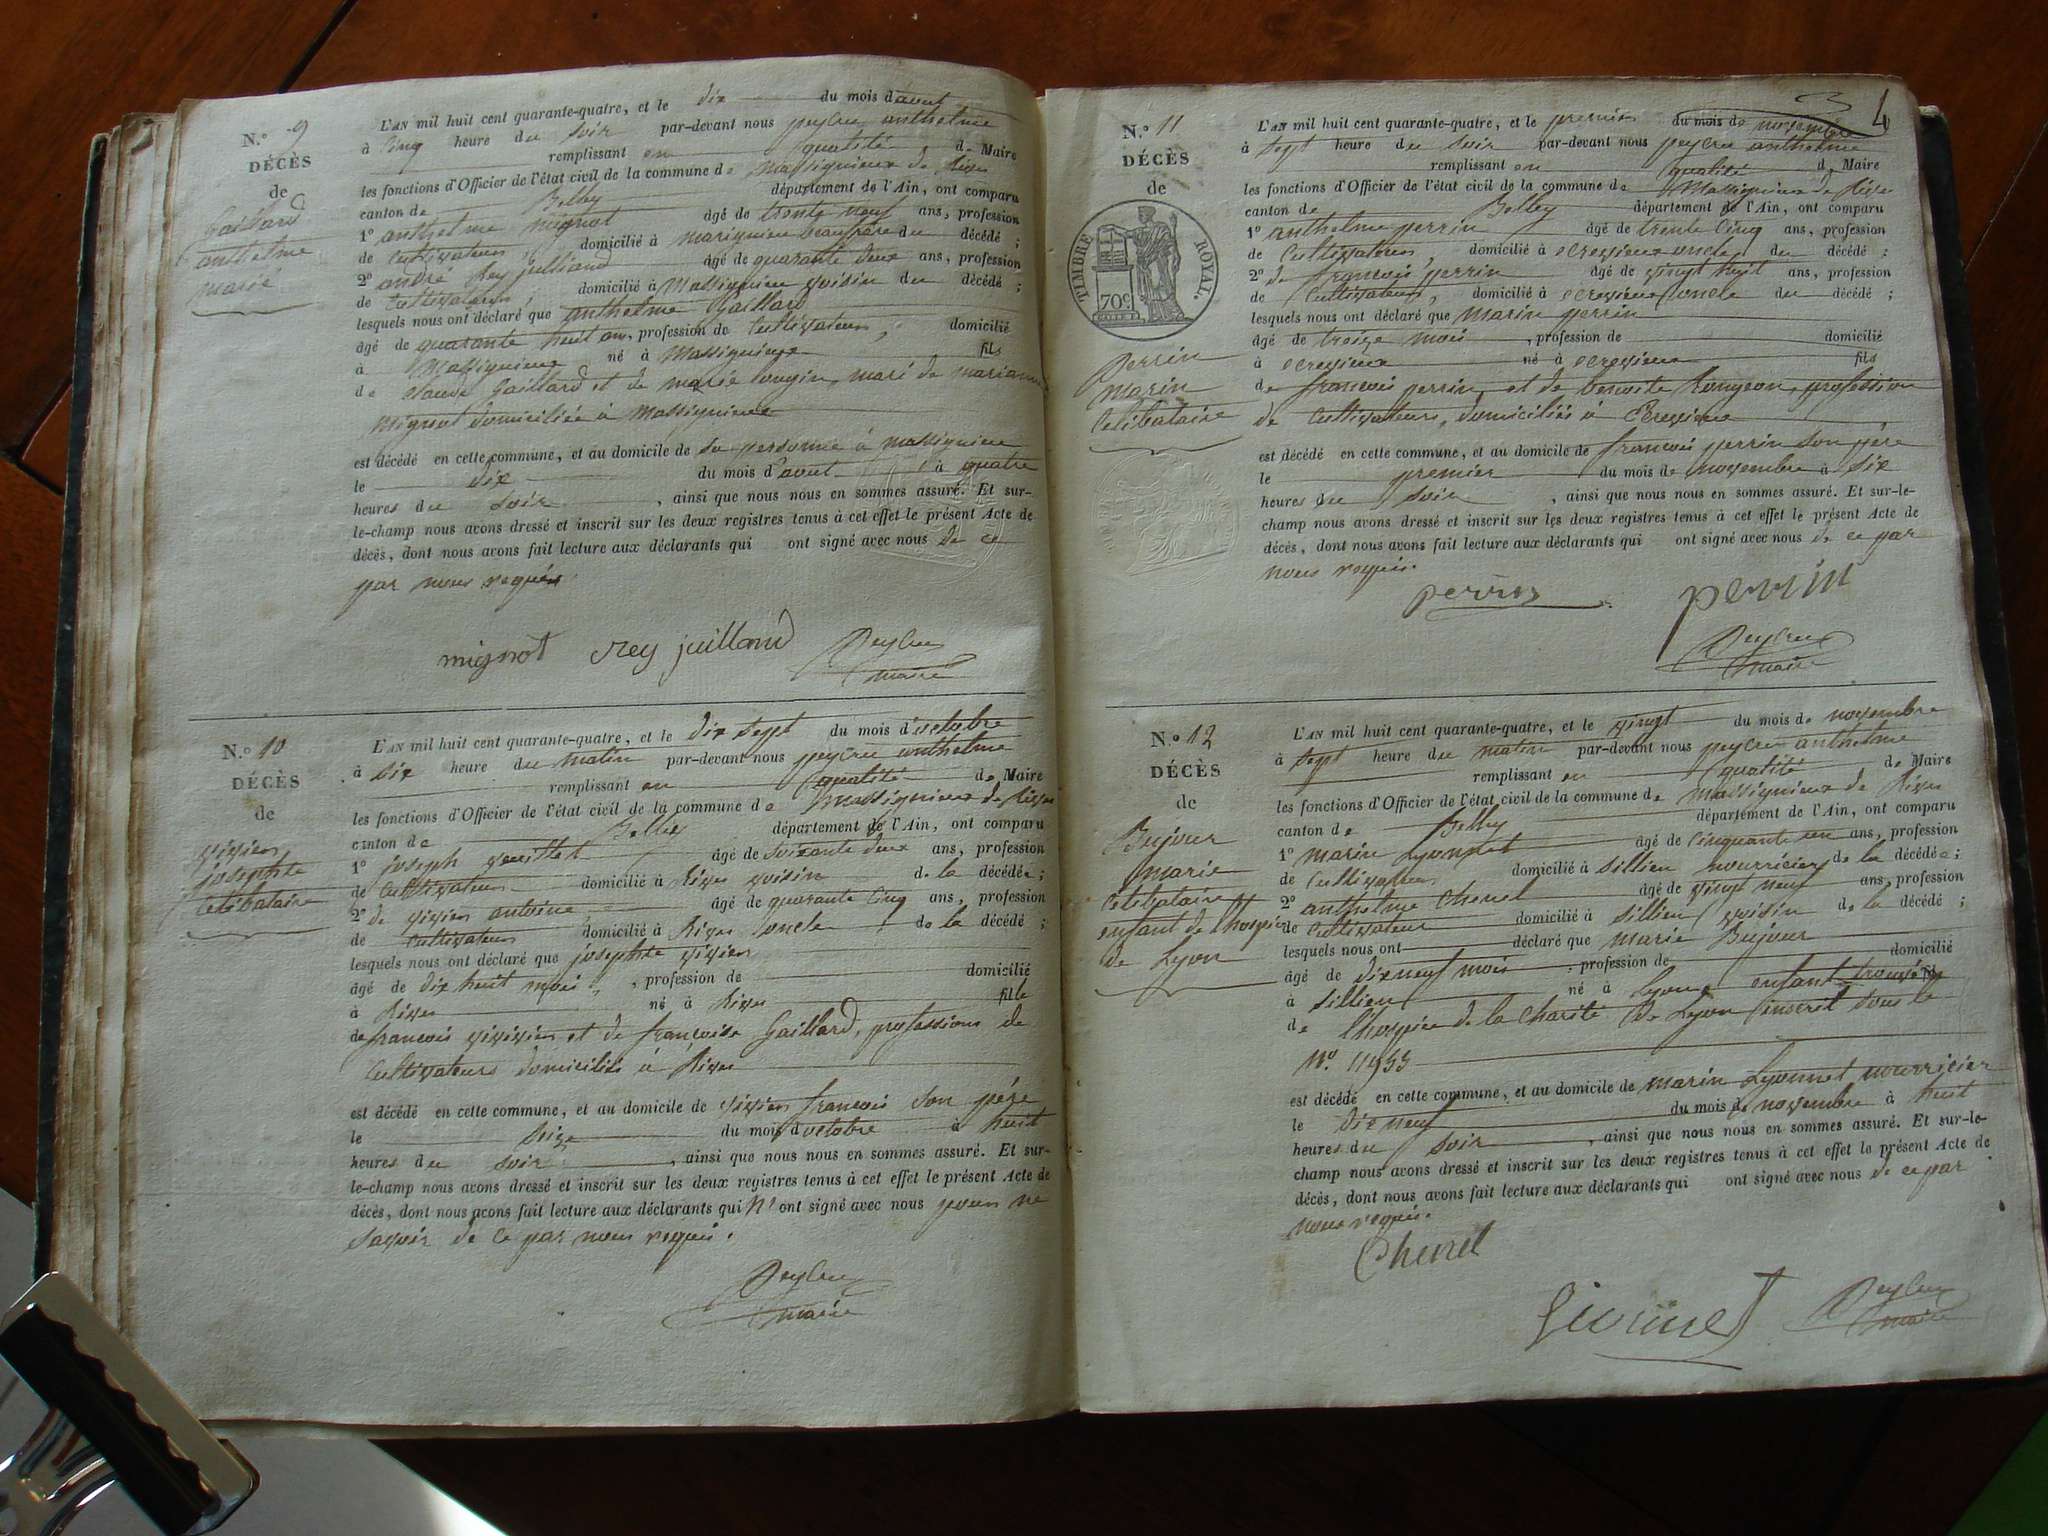 N.º 9
DÉCÈS
de
Gaillard
anthelme
marié
L'AN mil huit cent quarante-quatre, et le dix du mois d'aout
à cinq heure du soir par-devant nous peyCru anthelme
remplissant en qualité de Maire
les fonctions d'Officier de l'état civil de la commune de Massignieux de Rives
canton de Belley département de l'Ain, ont comparu
1º anthelme mignot âgé de trente neuf ans, profession
de cultivateur, domicilié à marignieu beaufrère du décédé ;
2º andré Rey juilliand âgé de quarante deux ans, profession
de cultivateur, domicilié à Massignieu voisin du décédé ;
lesquels nous ont déclaré que anthelme Gaillard
âgé de quarante huit ans, profession de cultivateur, domicilié
à Massignieux né à Massignieux fils
de Claude Gaillard et de marie, mari de marianne
mignot domiciliée à Massignieux
est décédé en cette commune, et au domicile de sa personne à massignieu
le dix du mois d'aout à quatre
heures du soir, ainsi que nous nous en sommes assuré. Et sur-
le-champ nous avons dressé et inscrit sur les deux registres tenus à cet effet le présent Acte de
décès, dont nous avons fait lecture aux déclarants qui ont signé avec nous de ce
par nous requis
mignot Rey juilland PeyCru
maire
N.º 10
DÉCÈS
de
vivien
josephte
Célibataire
L'AN mil huit cent quarante-quatre, et le dix sept du mois d'octobre
à six heure du matin par-devant nous peyCru anthelme
remplissant en qualité de Maire
les fonctions d'Officier de l'état civil de la commune de Massignieux de Rives
canton de Belley département de l'Ain, ont comparu
1º joseph âgé de soixante deux ans, profession
de cultivateur domicilié à Rives voisin de la décédée ;
2º de vivien antoine âgé de quarante cinq ans, profession
de cultivateur domicilié à Rives oncle de la décédé ;
lesquels nous ont déclaré que josephte vivien
âgé de dix huit mois, profession de domicilié
à Rives né à Rives fille
de francois vivien et de françoise Gaillard, professions de
cultivateurs domiciliés à Rives
est décédé en cette commune, et au domicile de vivien francois son père
le seize du mois d'octobre à huit
heures du soir, ainsi que nous nous en sommes assuré. Et sur-
le-champ nous avons dressé et inscrit sur les deux registres tenus à cet effet le présent Acte de
décès, dont nous avons fait lecture aux déclarants qui n' ont signé avec nous pour ne
savoir de ce par nous requis.
PeyCru
maire
3 4
N.º 11
DÉCÈS
de
TIMBRE ROYAL.
70c
Perrin
Marin
Célibataire
L'AN mil huit cent quarante-quatre, et le premier du mois de novembre
à sept heure du soir par-devant nous peyCru anthelme
remplissant en qualité de Maire
les fonctions d'Officier de l'état civil de la commune de Massignieux de Rives
canton de Belley département de l'Ain, ont comparu
1º anthelme perrin âgé de trente cinq ans, profession
de Cultivateur, domicilié à cressieux oncle du décédé ;
2º de francois perrin âgé de vingt huit ans, profession
de Cultivateur, domicilié à cressieux oncle du décédé ;
lesquels nous ont déclaré que marin perrin
âgé de treize mois, profession de domicilié
à cressieux né à cressieux fils
de francois perrin, et de benoite, profession
de Cultivateurs, domiciliés à Cressieux
est décédé en cette commune, et au domicile de francois perrin son père
le premier du mois de novembre à six
heures du soir, ainsi que nous nous en sommes assuré. Et sur-le-
champ nous avons dressé et inscrit sur les deux registres tenus à cet effet le présent Acte de
décès, dont nous avons fait lecture aux déclarants qui ont signé avec nous de ce par
nous requis.
perrin perrin
PeyCru
maire
N.º 12
DÉCÈS
de
Bujour
marie
Célibataire
enfant de l'hospice
de Lyon
L'AN mil huit cent quarante-quatre, et le vingt du mois de novembre
à sept heure du matin par-devant nous peyCru anthelme
remplissant en qualité de Maire
les fonctions d'Officier de l'état civil de la commune de Massignieux de Rives
canton de Belley département de l'Ain, ont comparu
1º marin Lyonnet âgé de cinquante un ans, profession
de Cultivateur domicilié à sillien nourricier de la décédée ;
2º anthelme Chenel âgé de vingt neuf ans, profession
de cultivateur domicilié à sillien voisin de la décédé ;
lesquels nous ont déclaré que marie Bujour
âgé de dix neuf mois, profession de domicilié
à sillien né à Lyon enfant trouvé fil
de l'hospice de la Charité de Lyon inscrit sous le
Nº. 11933
est décédé en cette commune, et au domicile de marin Lyonnet nourricier
le dix neuf du mois de novembre à huit
heures du soir, ainsi que nous nous en sommes assuré. Et sur-le-
champ nous avons dressé et inscrit sur les deux registres tenus à cet effet le présent Acte de
décès, dont nous avons fait lecture aux déclarants qui ont signé avec nous de ce par
nous requis.
Chenel
PeyCru
maire